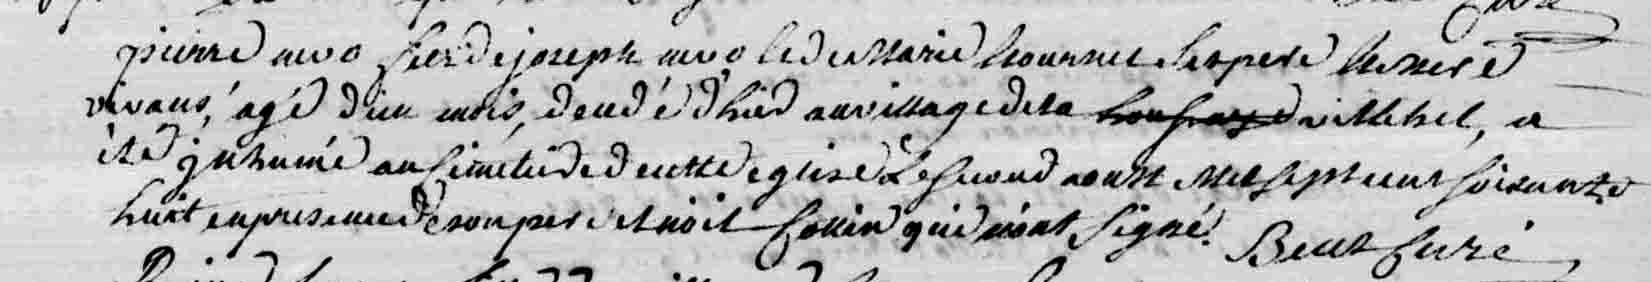 pierre mvo fils de joseph mvo et de marie tournet ses pere et mere
vivans, agé d'un mois, decedé d'hier au village de la villehel, a
été inhumé au Cimetiere de cette eglise Le second aoust mil sept cent soixante
huit en presence de son pere et noel Collin qui n'ont signé.
Curé